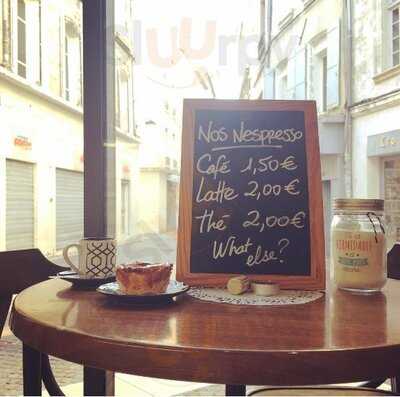 sluurpy
Nos Nespresso
Café 1,50€
Latte 2,00€
thé 2,00€
What else?